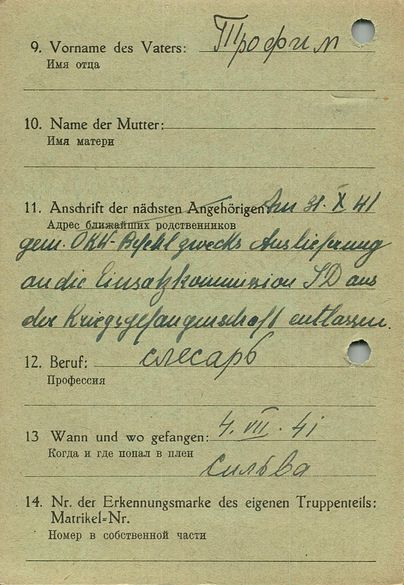 9. Vorname des Vaters: Трофим
Имя отца
10. Name der Mutter:
Имя матери
11. Anschrift der nächsten Angehörigen: Am 31. X 41
Адрес ближайших родственников
gem. OKW-Befehl zwecks Auslieferung
an die Einsatzkommission SD aus
der Kriegsgefangenschaft entlassen.
12. Beruf: слесарь
Профессия
13 Wann und wo gefangen: 4. VII. 41
Когда и где попал в плен
сильва
14. Nr. der Erkennungsmarke des eigenen Truppenteils:
Matrikel-Nr.
Номер в собственной части